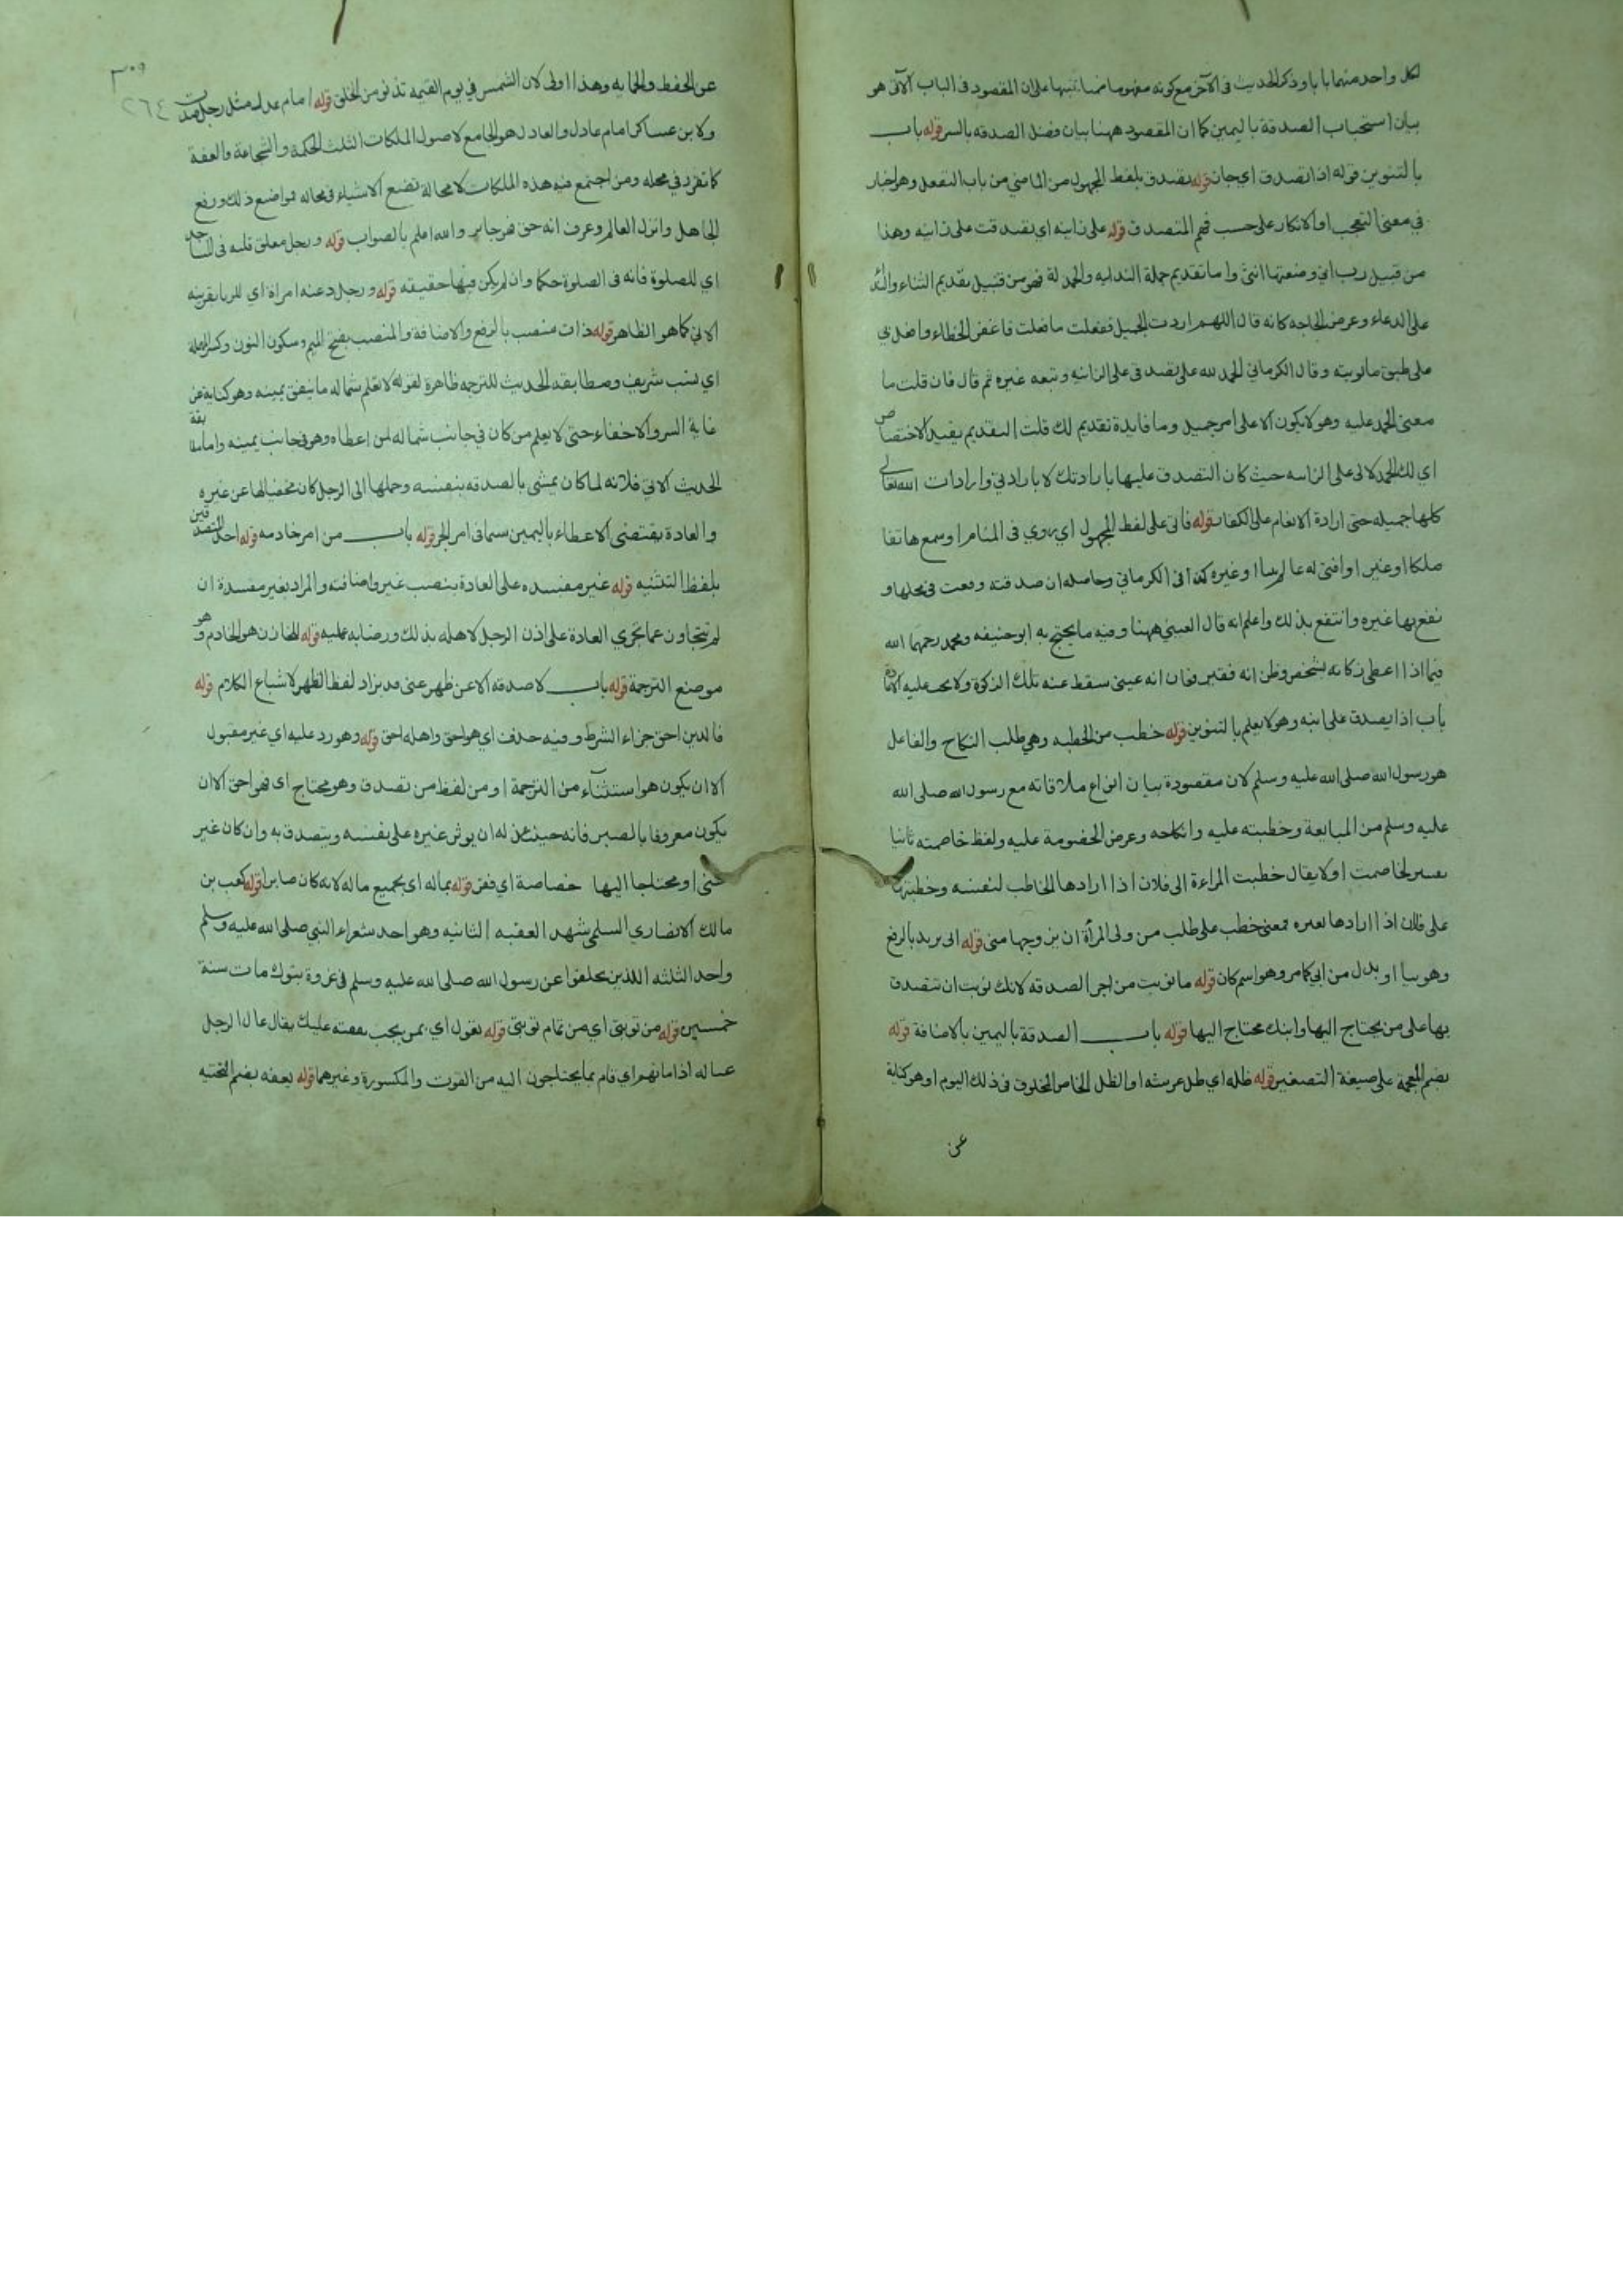 لكل واحد منهما بابا وذكر الحديث فى الآخر مع كونه مفهوما ضمنا تنبيها على ان المقصود فى الباب الآتى هو
بيان استحباب الصدقة باليمين كما ان المقصود ههنا بيان فضل الصدقه بالسر قوله باب
بالتنوين قوله اذا تصدق اى جاز قوله تصدق بلفظ المجهول من الماضي من باب التفعل وهو اخبار
في معنى التعجب او الانكار على حسب فهم المتصدق قوله على زانية اي تصدقت على زانيه وهذا
من قبيل رب اني وضعتها انثى واما تقديم جملة الندائيه والحمد لة فهو من قبيل تقديم الثناء
على الدعاء وعرض الحاجه كانه قال اللهم اردت الجميل ففعلت ما فعلت فاغفر الخطاء وافعل بي
على طبق ما نويته وقال الكرماني الحمد لله على تصدقى على الزانيه وتبعه غيره ثم قال فان قلت ما
معنى الحمد عليه وهو لا يكون الا على امر جميل وما فايدة تقديم لك قلت التقديم يفيد الاختصاص
اي لك الحمد لا لى على الزانيه حيث كان التصدق عليها بارادتك لا بارادتي وارادات الله تعالى
كلها جميله حتى ارادة الانعام على الكفار قوله فأتى على لفظ المجهول اي روي فى المنام او سمع هاتفا
ملكا او غيره او افتى له عالم او غيره كذا فى الكرماني وحاصله ان صدقته وقعت في محلها و
نفع بها غيره وانتفع بذلك واعلم انه قال العيني ههنا وفيه ما يحتج به ابو حنيفه ومحمد رحمهما الله
فيما اذا اعطى زكاته لشخص وظن انه فقير فبان انه غني سقط عنه تلك الزكوة ولا يجب عليه الاعادة
باب اذا تصدق على ابنه وهو لا يعلم بالتنوين قوله خطب من الخطبه وهي طلب النكاح والفاعل
هو رسول الله صلى الله عليه وسلم لان مقصودة بيان انواع ملاقاته مع رسول الله صلى الله
عليه وسلم من المبايعة وخطبته عليه وانكاحه وعرض الخصومة عليه ولفظ خاصمته ثانيا
تفسير لخاصمت اولا يقال خطبت المراءة الى فلان اذا ارادها الخاطب لنفسه وخطبتها
على فلان اذا ارادها لغيره فمعنى خطب على طلب من ولى المرأة ان يزوجها منى قوله ابى يزيد بالرفع
وهو بيان او بدل من ابي كامر وهو اسم كان قوله ما نويت من اجر الصدقه لانك نويت ان تتصدق
بها على من يحتاج اليها وابنك محتاج اليها قوله باب الصدقة باليمين بالاضافة قوله
بضم المعجمة على صيغة التصغير قوله ظله اي ظل عرشه او الظل الخاص المخلوق فى ذلك اليوم او هو كناية
عن
٣٠٩
٢٦٤
عن الحفظ والحمايه وهذا اولى لان الشمس في يوم القيمه تدنو من الخلق قوله امام عدل مثل رجل صدق
ولابن عساكر امام عادل والعادل هو الجامع لاصول الملكات الثلث الحكمة والشجاعة والعفة
كما تقرر في محله ومن اجتمع فيه هذه الملكات لا محالة تضع الاشياء في محاله مواضع ذلك ورفع
الجاهل وانزل العالم وعرف انه حق فهو جاير والله اعلم بالصواب قوله ورجل معلق قلبه فى المساجد
اي للصلوة فانه فى الصلوة حكما وان لم يكن فيها حقيقه قوله ورجل دعته امراة اي للزنا بقرينه
الاتي كما هو الظاهر قوله ذات منصب بالرفع والاضافة والمنصب بفتح الميم وسكون النون وكسر المهملة
اي نسب شريف ومطابقه الحديث للترجمه ظاهرة لقوله لا تعلم شماله ما ينفق يمينه وهو كناية عن
غاية السر والاخفاء حتى لا يعلم من كان في جانب شماله لمن اعطاه وهو في جانب يمينه واما مطابقة
الحديث الاتي فلانه لما كان يمشى بالصدقه بنفسه وحملها الى الرجل كان مخفيا لها عن غيره
والعادة يقتضى الاعطاء باليمين سيما فى امر الخير قوله باب من امر خادمه قوله احد المتصدقين
بلفظ التثنيه قوله غير مفسده على العادة بنصب غير واضافته والمراد بغير مفسدة ان
لم يتجاوز عما يجري العادة على اذن الرجل لاهله بذلك ورضا به عليه قوله للخازن هو الخادم وهو
موضع الترجمة قوله باب لا صدقه الا عن ظهر غنى قد يزاد لفظ الظهر لاشباع الكلام قوله
فالدين احق جزاء الشرط وفيه حذف اي هو احق واهله احق قوله وهو رد عليه اي غير مقبول
الا ان يكون هو استثناء من الترجمة او من لفظ من تصدق وهو محتاج اى فهو احق الا ان
يكون معروفا بالصبر فانه حينئذ له ان يوثر غيره على نفسه ويتصدق به وان كان غير
غنى او محتاجا اليها خصاصة اي فقر قوله بماله اى بجميع ماله لانه كان صابرا قوله كعب بن
مالك الانصاري السلمى شهد العقبه الثانيه وهو احد شعراء النبي صلى الله عليه وسلم
واحد الثلثه اللذين تخلفوا عن رسول الله صلى الله عليه وسلم فى غزوة تبوك مات سنة
خمسين قوله من توبتى اي من تمام توبتى قوله تعول اي بمن يجب نفقته عليك يقال عال الرجل
عياله اذا مانهم اي قام بما يحتاجون اليه من القوت والكسورة وغيرهما قوله يعفه بضم التحتيه